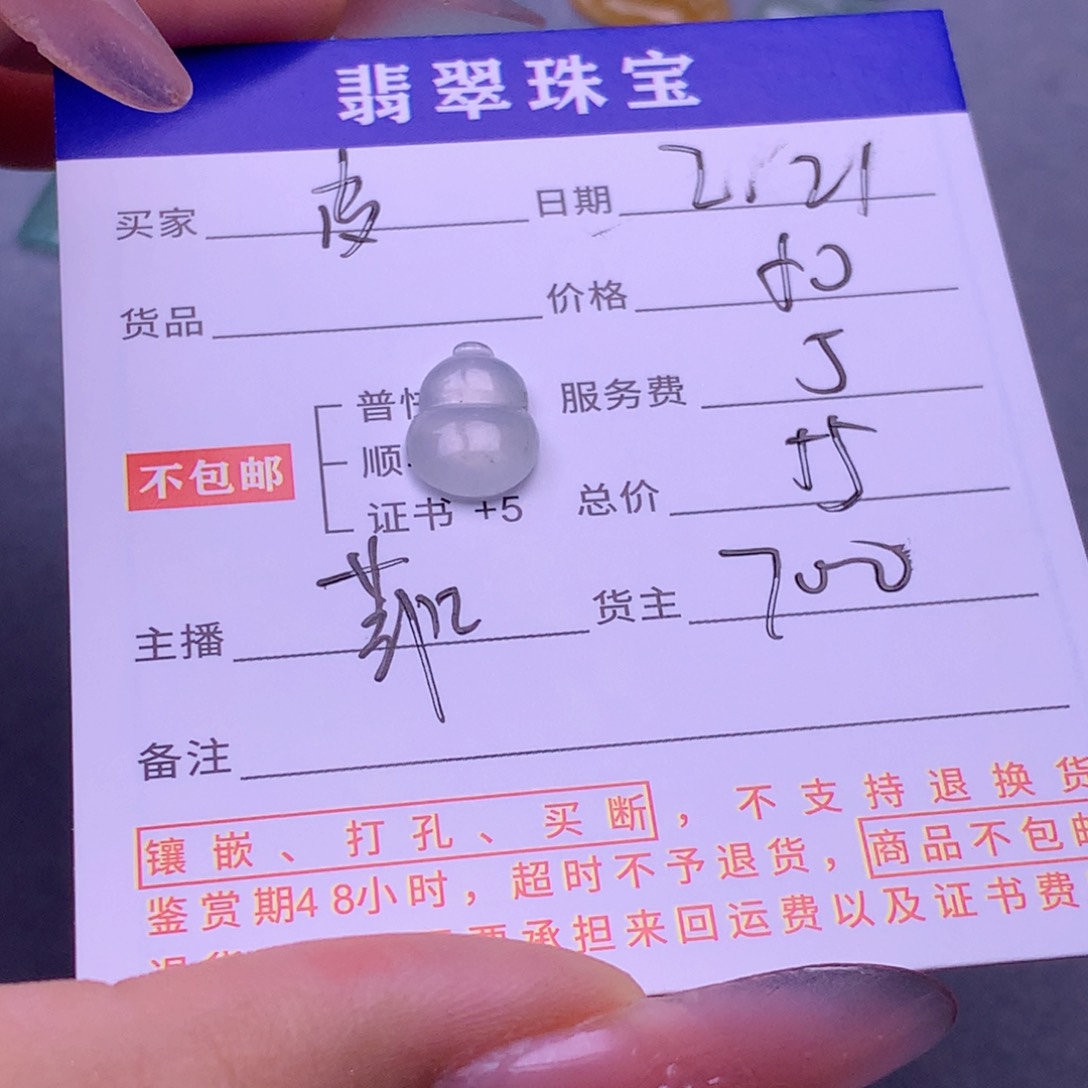 翡翠珠宝
买家 皮 日期 2.21
货品 价格
服务费 5
不包邮
顺
证书 +5 总价
主播 货主 700
备注
镶嵌、打孔、买断，不支持退换货
鉴赏期48小时，超时不予退货，商品不包邮
承担来回运费以及证书费